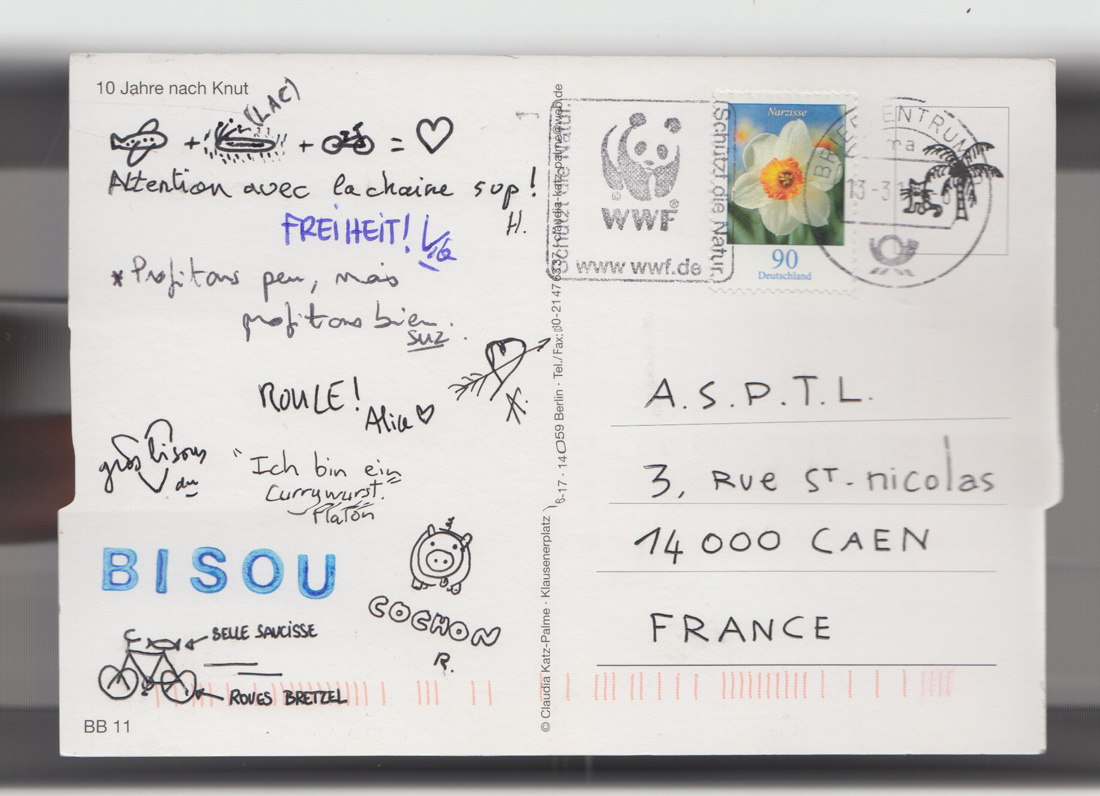 10 Jahre nach Knut
(LAC)
+ + =
Attention avec la chaine sup!
H.
FREiHEIT!
* Profitons peu, mais
profitons bien.
suz
ROULE!
Alice
X.
gros bisous
du
"Ich bin ein
Currywurst.
Platon
BISOU
COCHON
R.
BELLE SAUCISSE
ROUES BRETZEL
BB 11
© Claudia Katz-Palme · Klausenerplatz
14059 Berlin · Tel./Fax:
claudia-katz-palme@web.de
Schützt die Natur.
WWF
®
www wwf.de
Schützt die Natur.
Narzisse
90
Deutschland
13-3
A.S.P.T.L.
3, RUE ST-nicolas
14000 CAEN
FRANCE